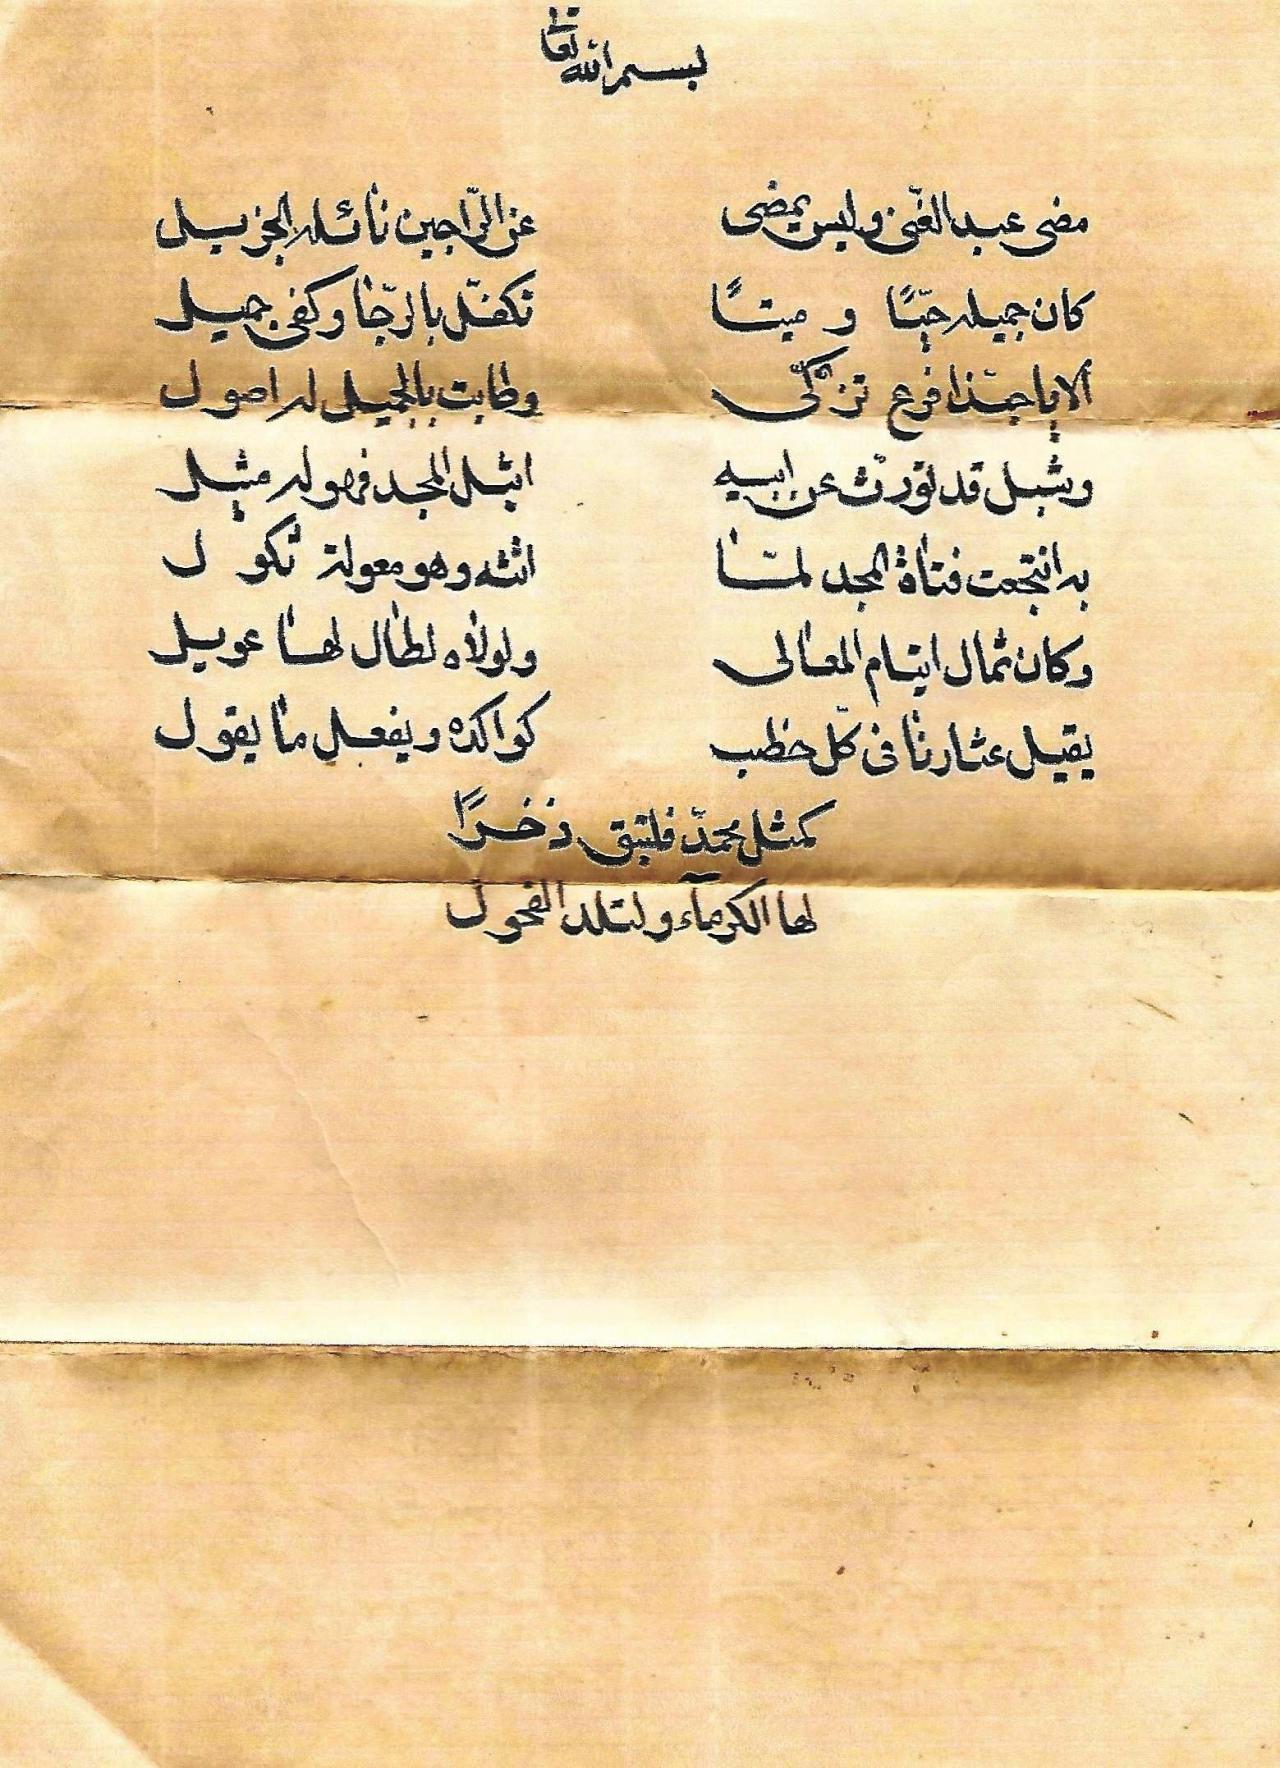 بسم الله تعالى
مضى عبد الغنى وليس يمضى عن الراجين نائله الجزيل
كان جميله حيًا و ميتًا تكفّل بالرجا وكفى جميل
ألا يا حبّذا فرع تزكّى وطابت بالجميل له اصول
وشبل قد تورّث عن ابيه اثيل المجد فهو له مثيل
به انتجعت فتاة المجد لمّا اتته وهو معولة ثكول
وكان ثمال ايتام المعالى ولولاه لطال لها عويل
يقيل عثارنا فى كلّ خطب كوالده ويفعل ما يقول
كمثل محمّد فلتبق ذخرًا
لها الكرمآء ولتلد الفحول